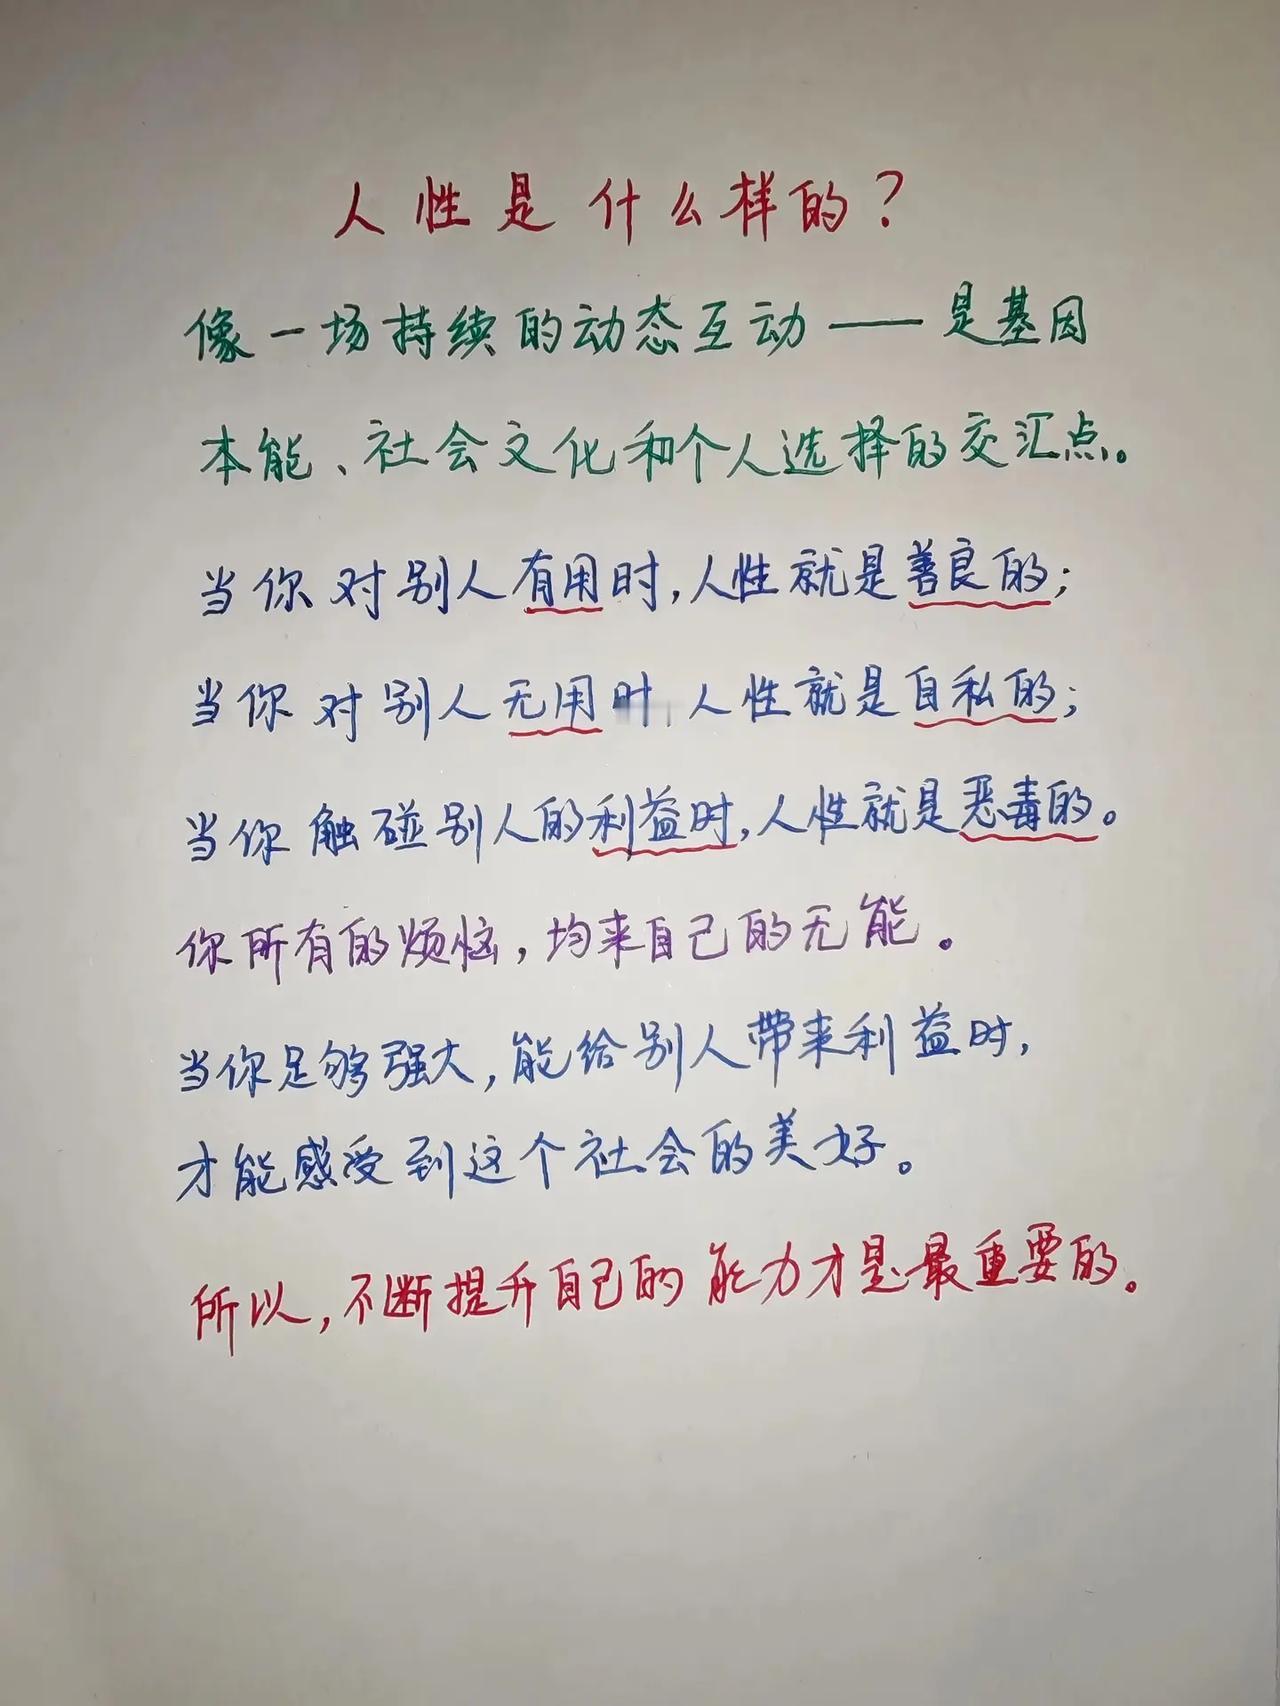 人性是什么样的?
像一场持续的动态互动——是基因
本能、社会文化和个人选择的交汇点。
当你对别人有用时,人性就是善良的;
当你对别人无用时,人性就是自私的;
当你触碰别人的利益时,人性就是恶毒的。
你所有的烦恼,均来自己的无能。
当你足够强大,能给别人带来利益时,
才能感受到这个社会的美好。
所以,不断提升自己的能力才是最重要的。